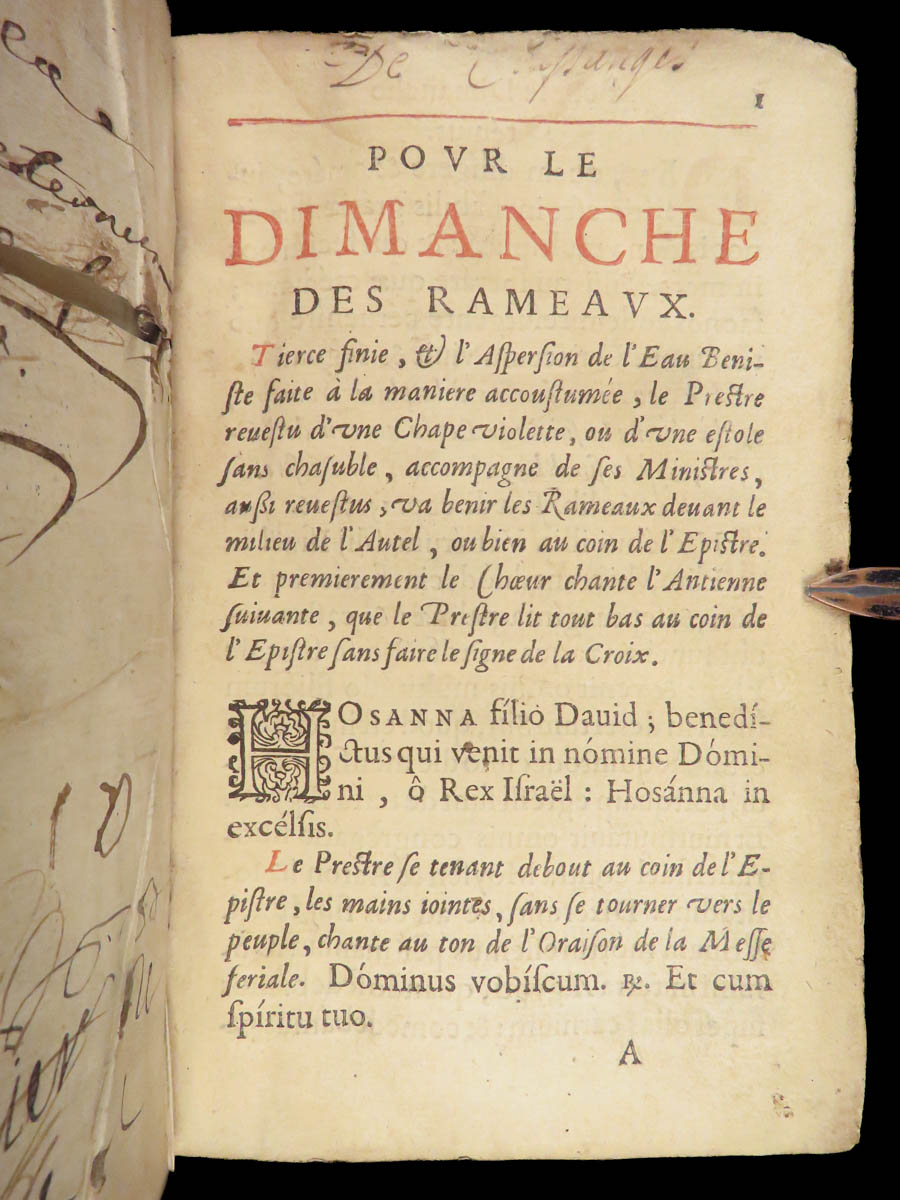 De
1
POVR LE
DIMANCHE
DES RAMEAVX.
Tierce finie, & l'Aſperſion de l'Eau Beni-
ſte faite à la maniere accouſtumée, le Preſtre
reueſtu d'vne Chape violette, ou d'vne eſtole
ſans chaſuble, accompagne de ſes Miniſtres,
auſſi reueſtus, va benir les Rameaux deuant le
milieu de l'Autel, ou bien au coin de l'Epiſtre.
Et premierement le Chœur chante l'Antienne
ſuiuante, que le Preſtre lit tout bas au coin de
l'Epiſtre ſans faire le ſigne de la Croix.
HOSANNA fílio Dauid; benedí-
ctus qui venit in nómine Dómi-
ni, ô Rex Iſraël: Hosánna in
excélſis.
Le Preſtre ſe tenant debout au coin de l'E-
piſtre, les mains iointes, ſans ſe tourner vers le
peuple, chante au ton de l'Oraiſon de la Meſſe
feriale. Dóminus vobíſcum. ℟. Et cum
ſpíritu tuo.
A